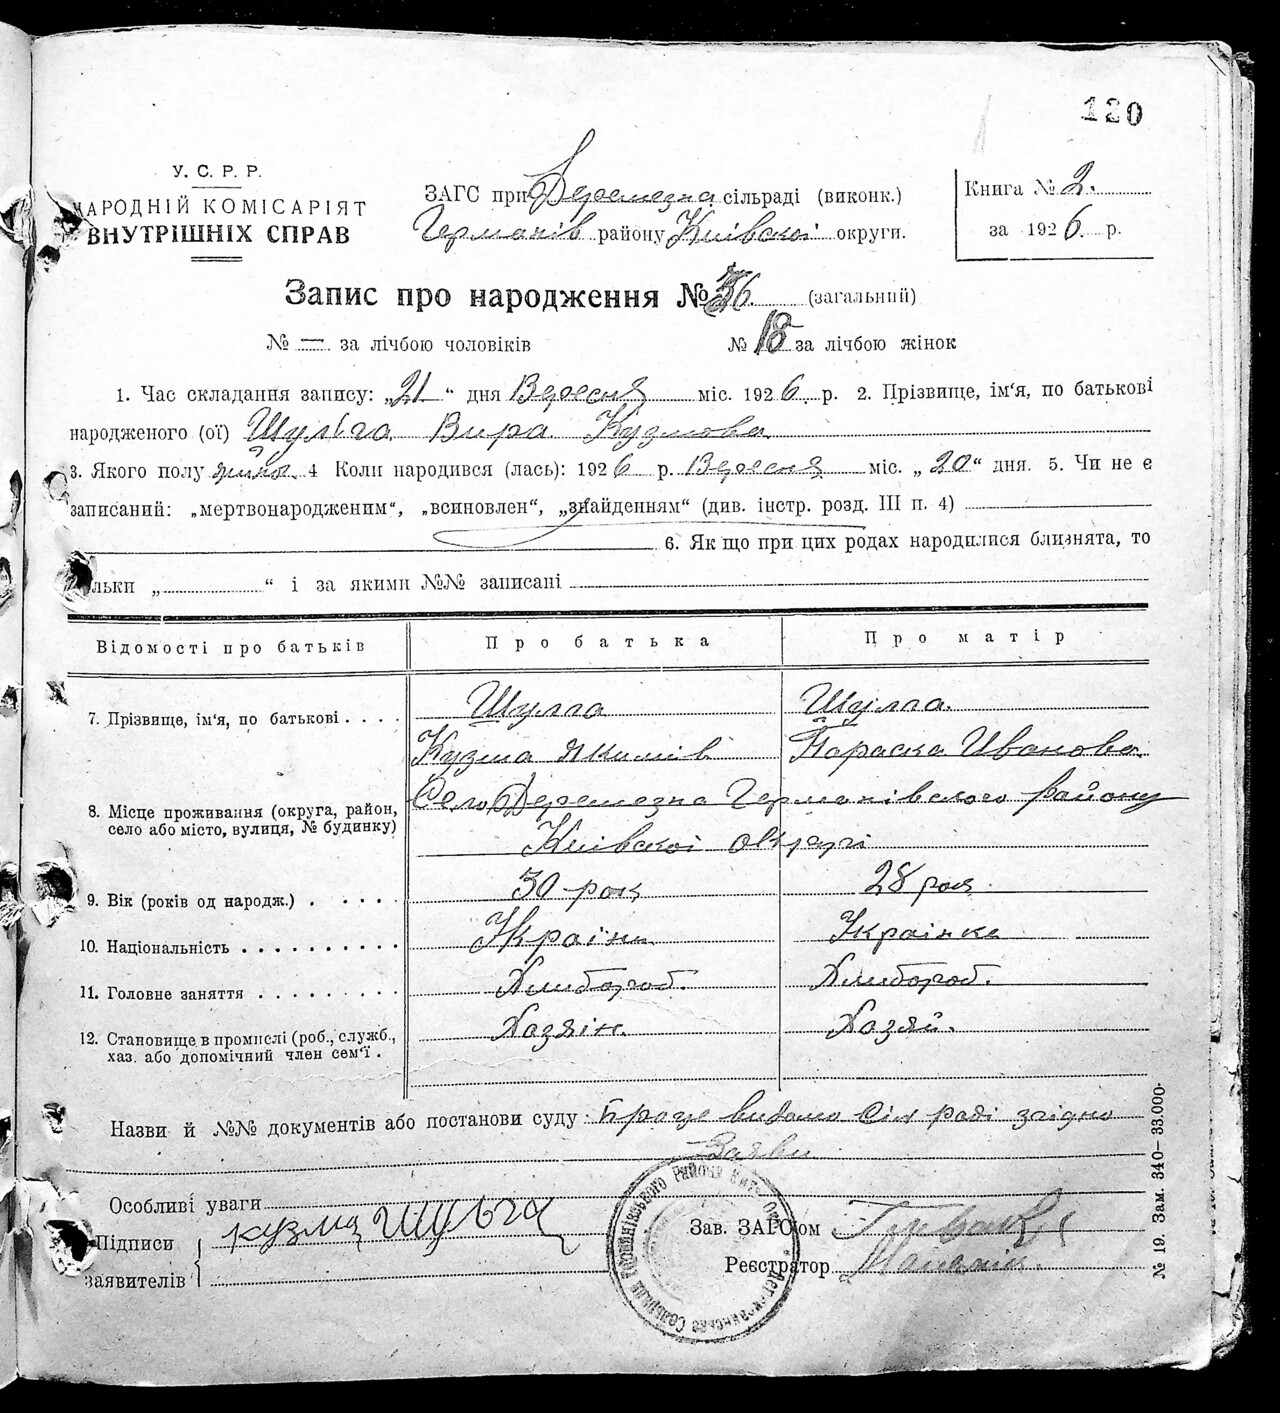 120
У. С. Р. Р.
НАРОДНІЙ КОМІСАРІЯТ
ВНУТРІШНІХ СПРАВ
ЗАГС при Деремезна сільраді (виконк.)
Германів району Київскої округи.
Книга № 2.
за 1926 р.
Запис про народження № 36. (загальний)
№ — за лічбою чоловіків № 18 за лічбою жінок
1. Час складання запису: „21“ дня Вересня міс. 1926 р. 2. Прізвище, ім'я, по батькові
народженого (ої) Шульга Вира Кузмова
3. Якого полу жіно. 4 Коли народився (лась): 1926 р. Вересня міс. „20“ дня. 5. Чи не є
записаний: „мертвонародженим“, „всиновлен“, „знайденням“ (див. інстр. розд. III п. 4)
6. Як що при цих родах народилися близнята, то
льки „ “ і за якими №№ записані
Відомості про батьків Про батька Про матір
7. Прізвище, ім'я, по батькові . . . . Шулга Шулга.
Кузма Якимів Параска Иванова
8. Місце проживання (округа, район, село або місто, вулиця, № будинку) Село Деремезна Германівского району
Київскої округі
9. Вік (років од народж.) . . . . . 30 рок 28 рок
10. Національність . . . . . . . . . . Українц Українка
11. Головне заняття . . . . . . . . . Хлибороб. Хлибороб.
12. Становище в промислі (роб., служб., хаз. або допомічний член сем'ї . Хазяін. Хазяй.
Назви й №№ документів або постанови суду: видано Сіл раді згідно
Заяви
Особливі уваги
Підписи
заявителів
кузма Шульга
Зав. ЗАГС'ом
Реєстратор
№ 19. Зам. 340—33.000.